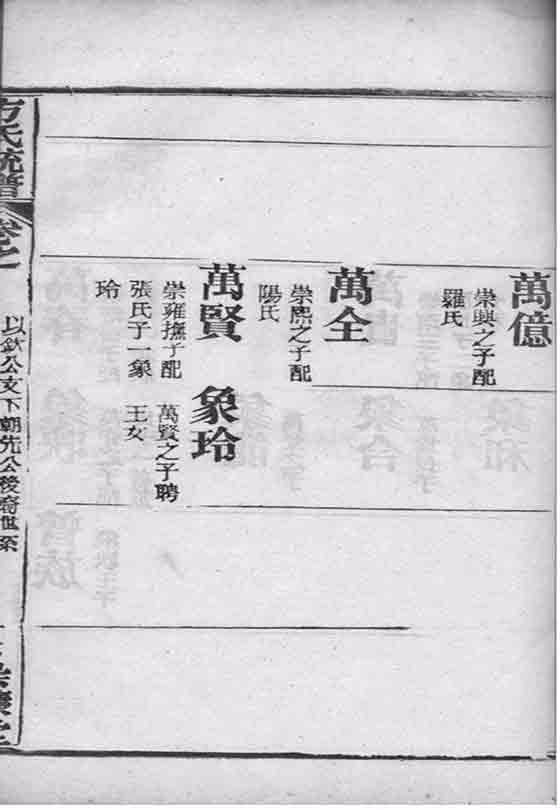 萬億
崇興之子配
羅氏
萬全
崇熙之子配
陽氏
萬賢
崇雍撫子配
張氏子一象
玲
象玲
萬賢之子聘
王女
方氏統譜
卷之
以欽公支下朝先公後裔世系